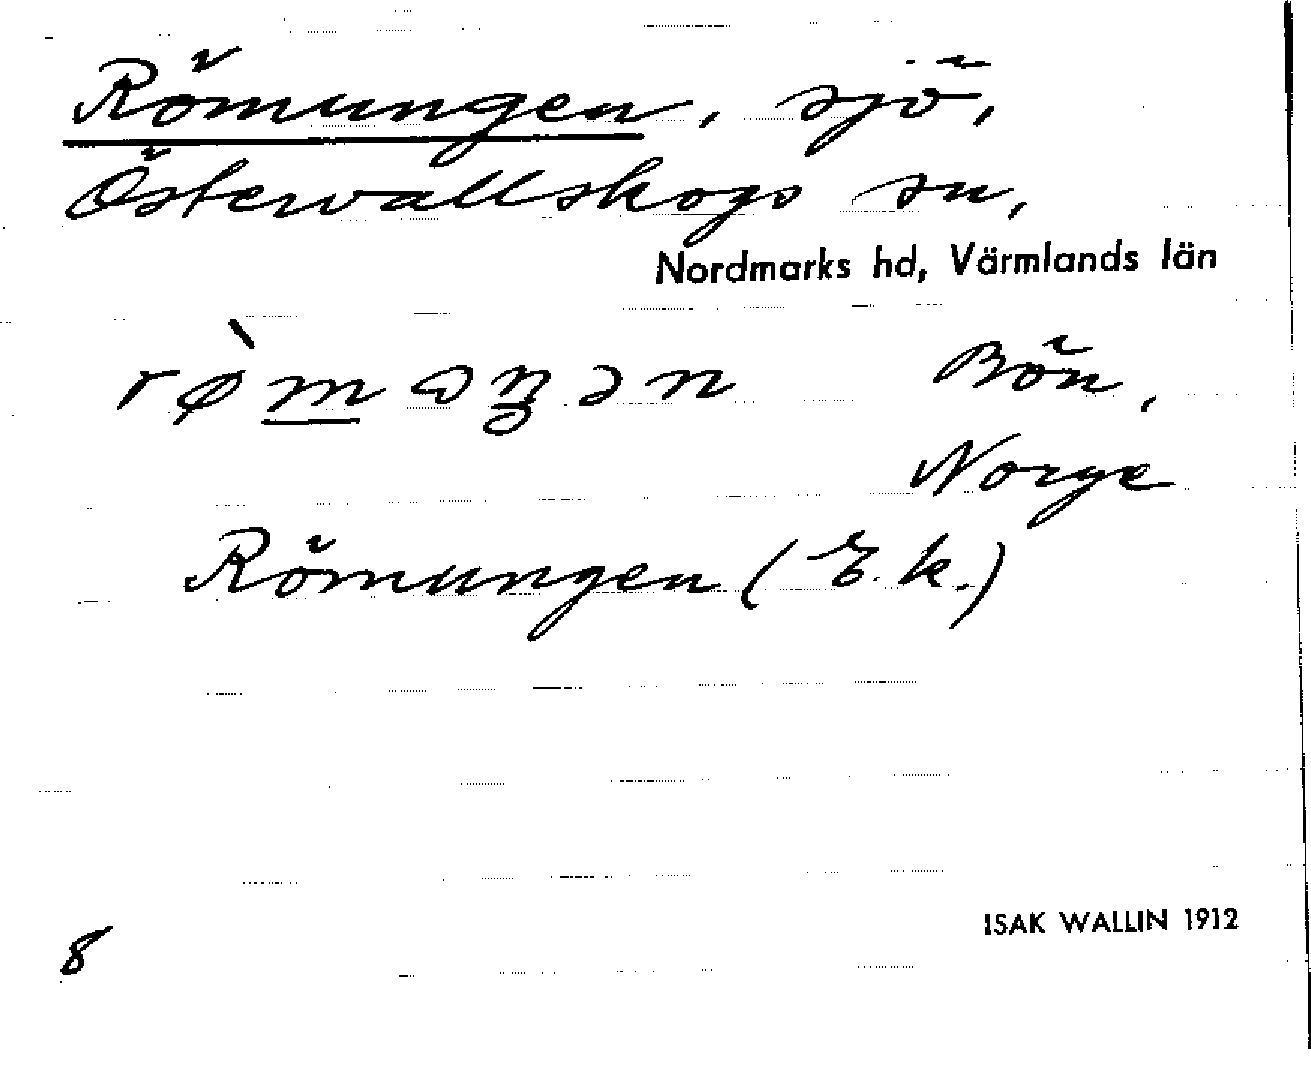 Römungen, sjö,
Östervallskogs sn,
Nordmarks hd, Värmlands län
Bön,
Norge
Römungen (E.k.)
8
ISAK WALLIN 1912